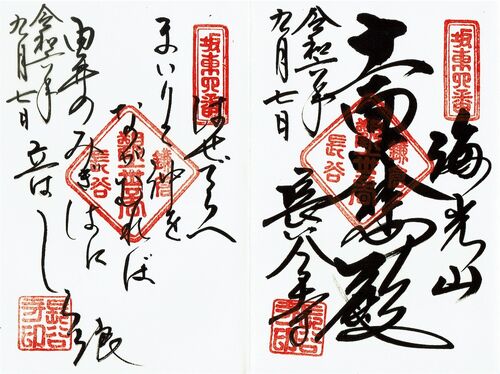 坂東四番
海光山
十一面大悲殿
長谷寺
令和二年
九月七日
鎌倉
長谷
長谷寺印
坂東四番
はせでらへ
まいりて沖を
ながむれば
由井のみぎはに
立はしら浪
令和二年
九月七日
鎌倉
長谷
長谷寺印